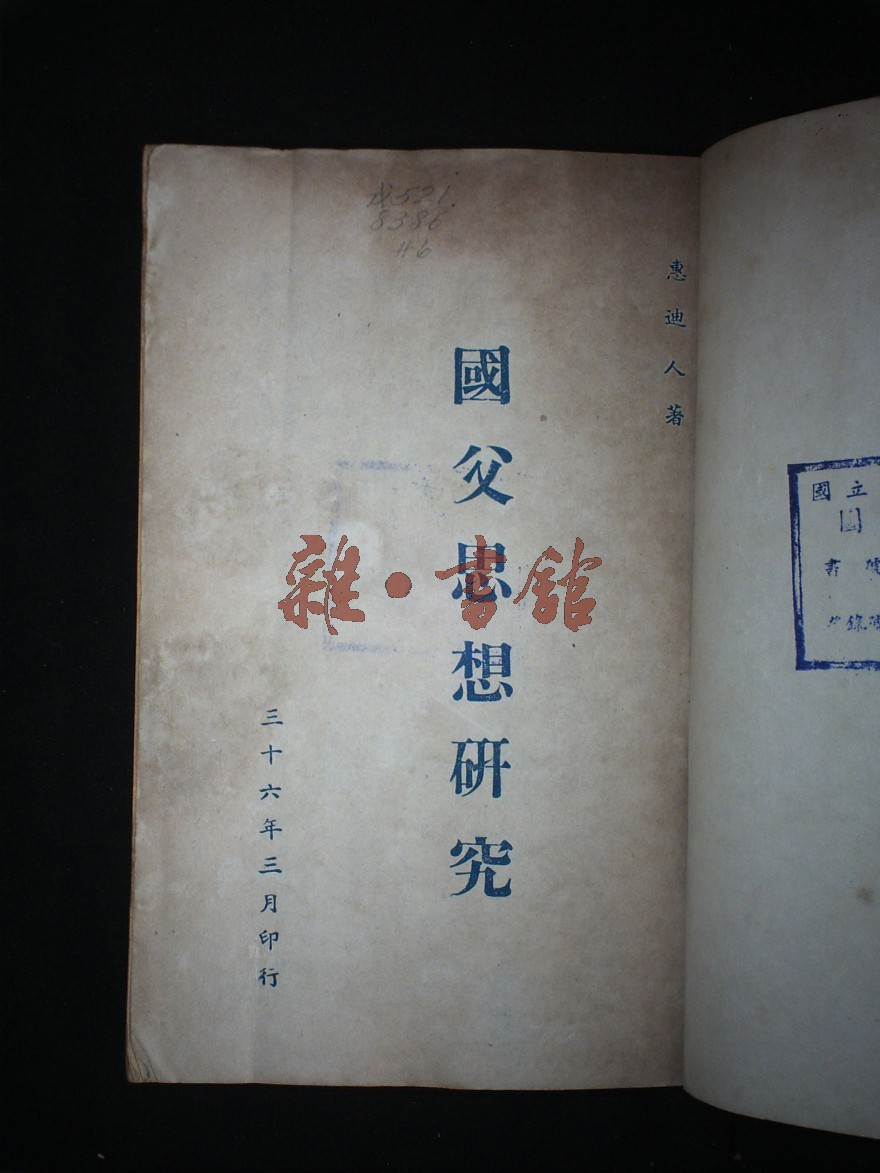 戊521.
8386
H6
惠迪人著
國父思想研究
三十六年三月印行
雜·書館
國立
圖
書
錄